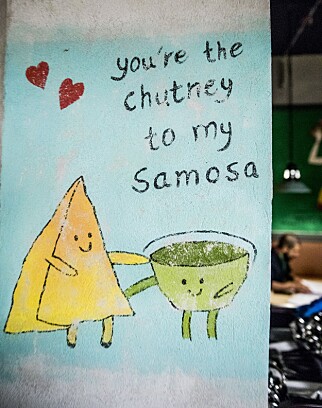 you're the
chutney
to my
Samosa